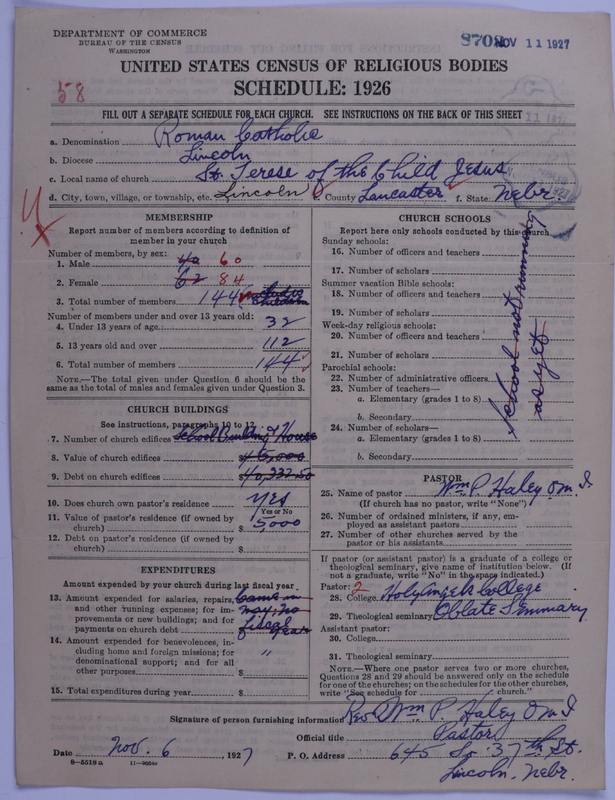 DEPARTMENT OF COMMERCE
BUREAU OF THE CENSUS
WASHINGTON
8708 NOV 11 1927
UNITED STATES CENSUS OF RELIGIOUS BODIES
SCHEDULE: 1926
58
FILL OUT A SEPARATE SCHEDULE FOR EACH CHURCH. SEE INSTRUCTIONS ON THE BACK OF THIS SHEET
a. Denomination Roman Catholic
b. Diocese Lincoln
c. Local name of church St. Terese of the Child Jesus
d. City, town, village, or township, etc. Lincoln County Lancaster f. State: Nebr.
MEMBERSHIP
Report number of members according to definition of
member in your church
Number of members, by sex:
1. Male 40 60
2. Female 62 84
3. Total number of members 144
Number of members under and over 13 years old:
4. Under 13 years of age 32
5. 13 years old and over 112
6. Total number of members 144
NOTE.—The total given under Question 6 should be the
same as the total of males and females given under Question 3.
CHURCH BUILDINGS
See instructions, paragraphs 10 to 12
7. Number of church edifices School Building & House
8. Value of church edifices $ 45,000
9. Debt on church edifices $ 40,332.50
10. Does church own pastor's residence? yes
Yes or No
11. Value of pastor's residence (if owned by
church) $ 5000
12. Debt on pastor's residence (if owned by
church) $
EXPENDITURES
Amount expended by your church during last fiscal year
13. Amount expended for salaries, repairs, Came in
and other running expenses; for im- May, no
provements or new buildings; and for fiscal
payments on church debt year
14. Amount expended for benevolences, in-
cluding home and foreign missions; for "
denominational support; and for all
other purposes $
15. Total expenditures during year $
CHURCH SCHOOLS
Report here only schools conducted by this church
Sunday schools:
16. Number of officers and teachers
17. Number of scholars
Summer vacation Bible schools:
18. Number of officers and teachers
19. Number of scholars
Week-day religious schools:
20. Number of officers and teachers
21. Number of scholars
Parochial schools:
22. Number of administrative officers
23. Number of teachers—
a. Elementary (grades 1 to 8)
b. Secondary
24. Number of scholars—
a. Elementary (grades 1 to 8)
b. Secondary
School not running
as yet
PASTOR
25. Name of pastor Wm P. Haley O.M.I.
(If church has no pastor, write "None")
26. Number of ordained ministers, if any, em-
ployed as assistant pastors
27. Number of other churches served by the
pastor or his assistants
If pastor (or assistant pastor) is a graduate of a college or
theological seminary, give name of institution below. (If
not a graduate, write "No" in the space indicated.)
Pastor: 2
28. College Holy Angels College
29. Theological seminary Oblate Seminary
Assistant pastor:
30. College
31. Theological seminary
NOTE.—Where one pastor serves two or more churches,
Questions 28 and 29 should be answered only on the schedule
for one of the churches; on the schedules for the other churches,
write "See schedule for church."
Signature of person furnishing information Rev. Wm P. Haley O.M.I.
Official title Pastor
Date Nov. 6, 1927 P. O. Address 645 So. 37th St.
Lincoln, Nebr.
8—5518 a